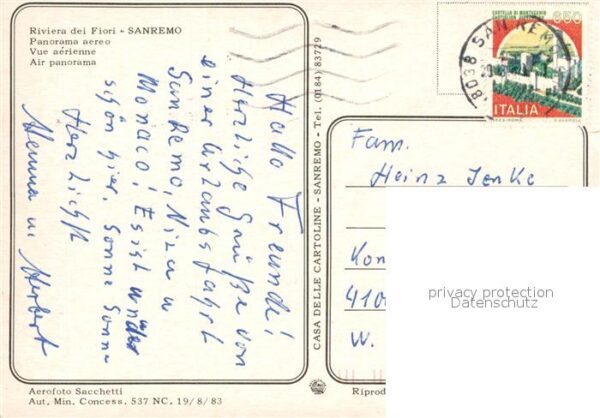 Riviera dei Fiori - SANREMO
Panorama aereo
Vue aérienne
Air panorama
Hallo Freunde!
Herzliche Grüße von
einer Urlaubsfahrt
San Remo, Nizza u
Monaco! Es ist wunder
schön hier. Sonne Sonne
Herzlichst
Hanna u. Herbert
Aerofoto Sacchetti
Aut. Min. Concess. 537 NC. 19/8/83
CASA DELLE CARTOLINE - SANREMO - Tel. (0184) 83729
CASTELLO DI MONTECCHIO
850
ITALIA
18038 SANREM
Fam.
Heinz Jenke
Kon
410
W.
Riprod
privacy protection
Datenschutz